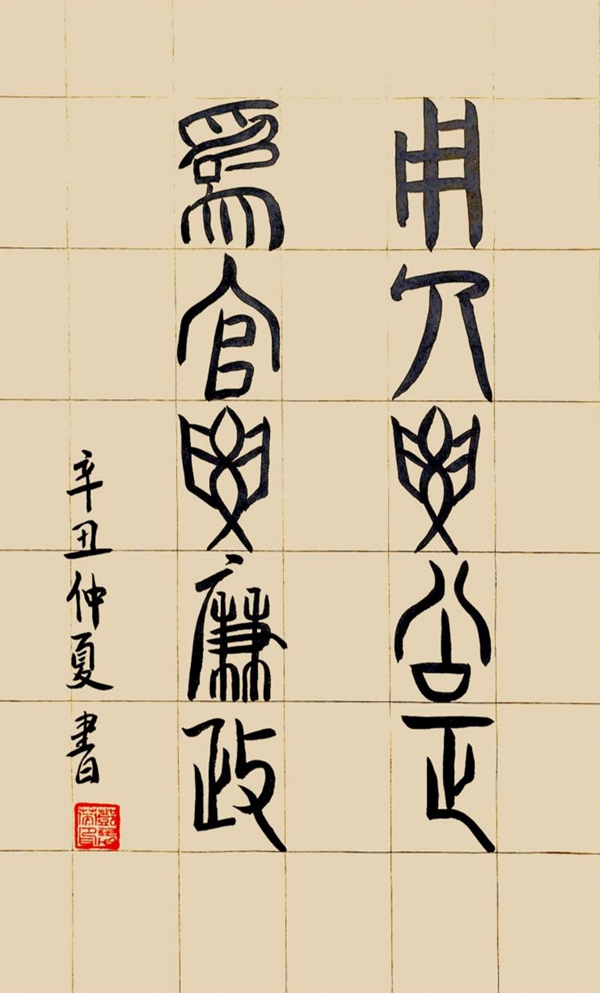 用人要公正
為官要廉政
辛丑仲夏書